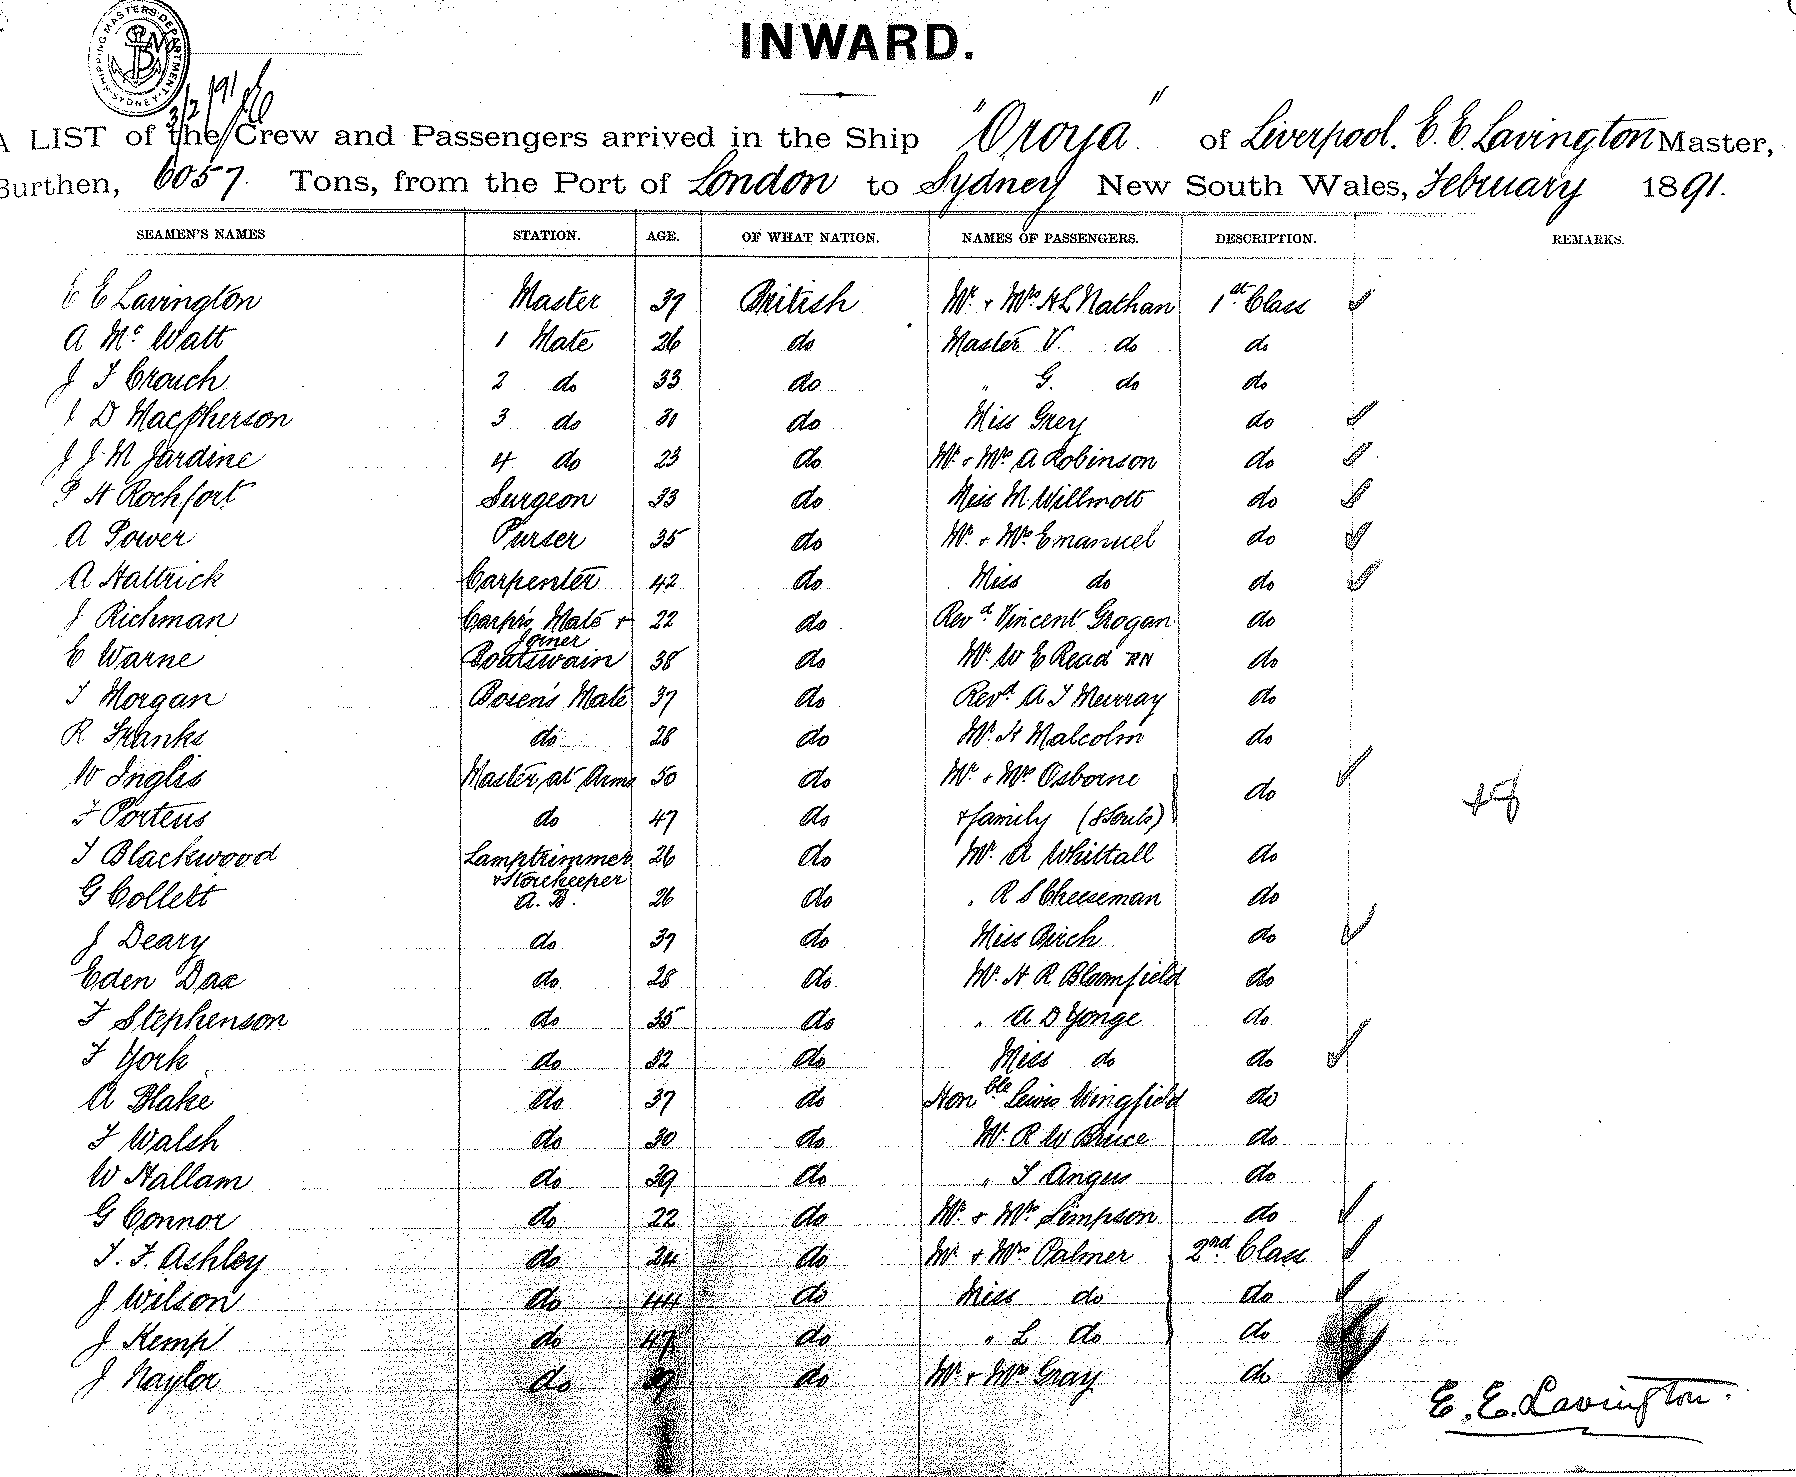 INWARD.
SHIPPING MASTERS DEPARTMENT SYDNEY
3/2/91
A LIST of the Crew and Passengers arrived in the Ship "Oroya" of Liverpool. E. E. Lavington Master,
Burthen, 6057 Tons, from the Port of London to Sydney New South Wales, February 1891.
SEAMEN'S NAMES STATION. AGE. OF WHAT NATION. NAMES OF PASSENGERS. DESCRIPTION. REMARKS.
E E Lavington Master 39 British Mr. & Mrs H L Nathan 1st Class
A Mc Watt 1 Mate 26 do Master V. do do
J T Crouch 2 do 33 do " G. do do
D MacPherson 3 do 30 do Miss Grey do
J J M Jardine 4 do 23 do Mr. & Mrs A Robinson do
P H Rochfort Surgeon 33 do Miss M Willmott do
A Power Purser 35 do Mr. & Mrs Emanuel do
A Hattrick Carpenter 42 do Miss do do
J Richman Carpr's Mate & Joiner 22 do Revd Vincent Grogan do
E Warne Boatswain 38 do Mr. W E Read RN do
T Morgan Bosen's Mate 37 do Revd. A T Murray do
R Franks do 28 do Mr. H Malcolm do
W Inglis Master at Arms 50 do Mr. & Mrs Osborne do
F Porteus do 47 do & family (8 Souls) +8
T Blackwood Lamptrimmer & Storekeeper 26 do Mr. A Whittall do
G Collett A. B. 26 do " R S Cheeseman do
J Deary do 39 do Miss Birch do
Eden Dax do 28 do Mr. H R Bloomfield do
F Stephenson do 35 do " A D Yonge do
F York do 32 do Miss do do
A Blake do 37 do Honble Lewis Wingfield do
F Walsh do 30 do Mr. R W Bruce do
W Hallam do 39 do " T Angus do
G Connor do 22 do Mr. & Mrs Simpson do
T. F. Ashley do 24 do Mr & Mrs Palmer 2nd Class
J Wilson do 44 do Miss do do
J Kemp do 47 do " L do do
J Naylor do 39 do Mr & Mrs Gray do
E. E. Lavington.